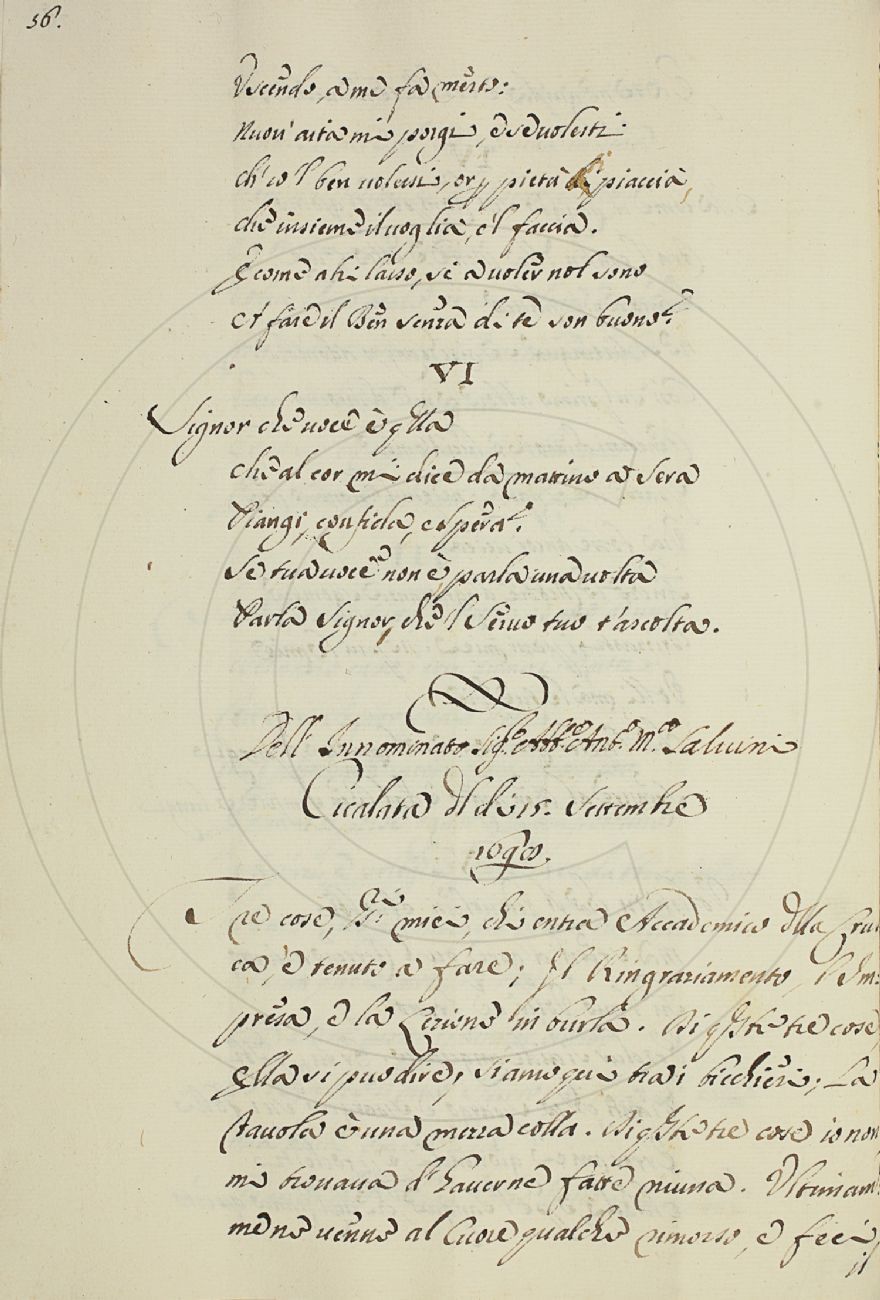 56.
Uscendo, a me fa merto:
Nuov' aita mi porgi, e se volesti
ch'io 'l ben volessi, or p pietà ti piaccia,
che insieme il voglia, e 'l faccia.
E come ahi lasso, se a voler nol sono
et fare il Ben senza di te son buono?
VI
Signor che voce è qlla
che al cor mi dice da mattino a sera
Piangi, confida, e spera?
Se tua voce non è, parla una volta
Parla Signor, che 'l Servo tuo t'ascolta.
Dell' Innominato Sigr. Abb.e Ant.o M.a Salvini
Cicalata dl dì 15. Settembre
Tre cose, miei, chi entra Accademico dlla Crus
ca, è tenuto a fare; Il Ringraziamento, l'Im:
presa, e la Lezione in burla. Di qste tre cose,
qlla si può dire, siamo quì tra i bicchieri; La
tavola è una mezza colla. Di qste tre cose io non
mi trovava d'haverne fatte niuna. Ultimam:
mene venne al Cuore qualche rimorso, e feci,
il